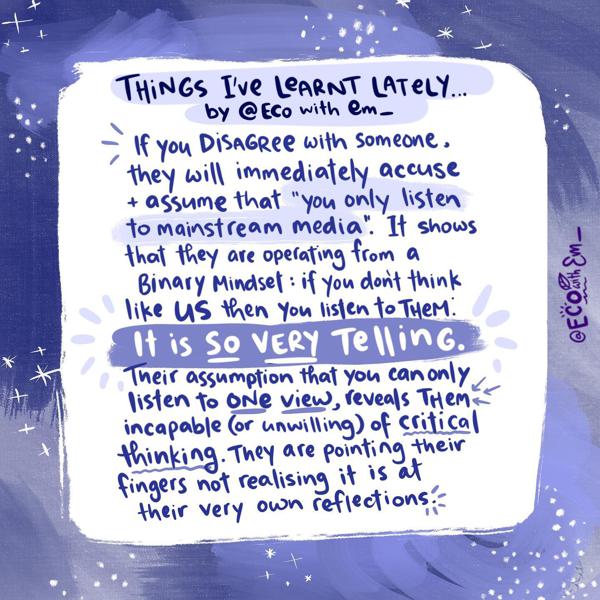 THINGS I'VE LEARNT LATELY...
by @ECO with em_
If you DISAGREE with someone,
they will immediately accuse
+ assume that "you only listen
to mainstream media". It shows
that they are operating from a
Binary Mindset: if you don't think
like US then you listen to THEM.
It is SO VERY Telling.
Their assumption that you can only
listen to ONE view, reveals THEM
incapable (or unwilling) of critical
thinking. They are pointing their
fingers not realising it is at
their very own reflections.
@ECO with Em_